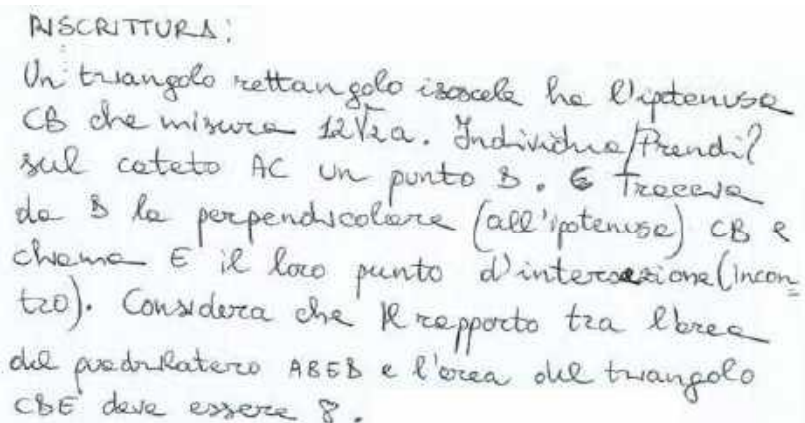 RISCRITTURA:
Un triangolo rettangolo isoscele ha l'ipotenusa
CB che misura 12√2a. Individua/Prendi?
sul cateto AC un punto D. E Traccia
da D la perpendicolare (all'ipotenusa) CB e
chiama E il loro punto d'intersezione (incon
tro). Considera che il rapporto tra l'area
del quadrilatero ABED e l'area del triangolo
CDE deve essere 8.